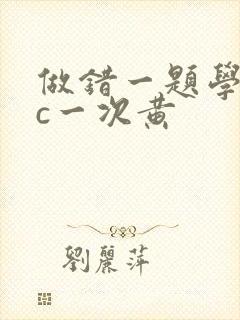 做錯一題學
c一次黄
劉麗萍